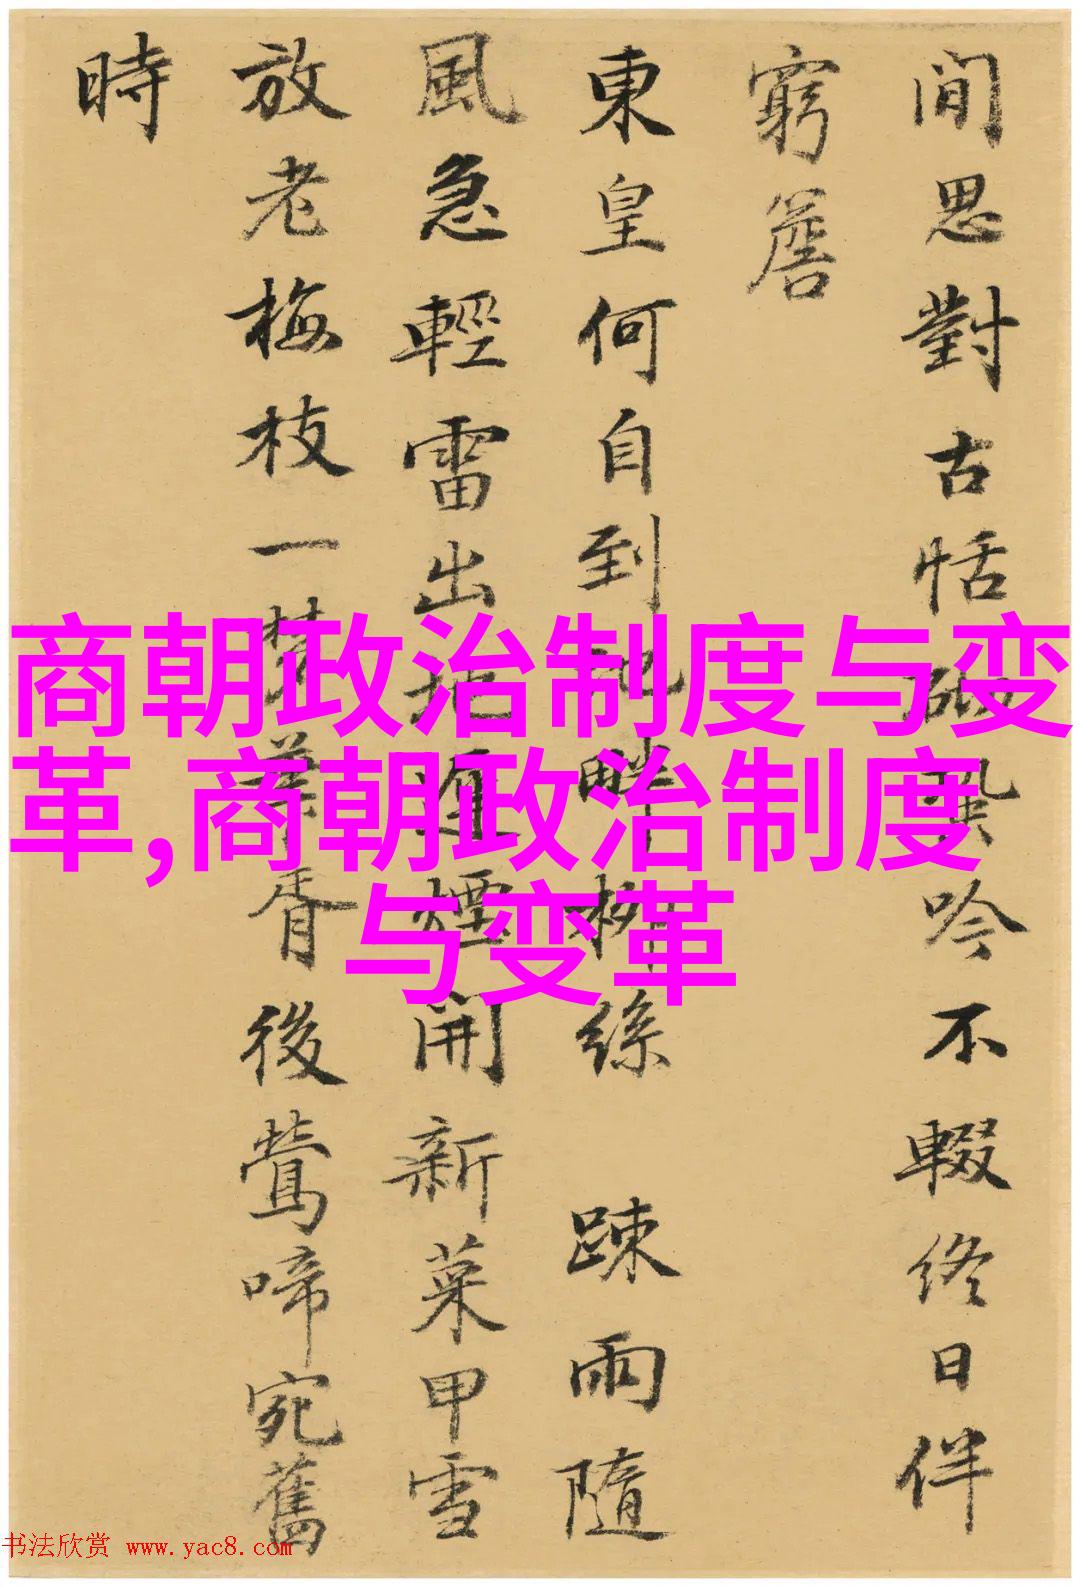 閒思對古恬 蛩吟不輟終日伴
窮簷
東皇何自到池畔柳絲 踈雨隨
風急輕雷出地 煙開新菜甲雪
放老梅枝一夢華胥後鶯啼宛舊
時
商朝政治制度与变
革,商朝政治制度
与变革
书法欣赏 www.yac8.com